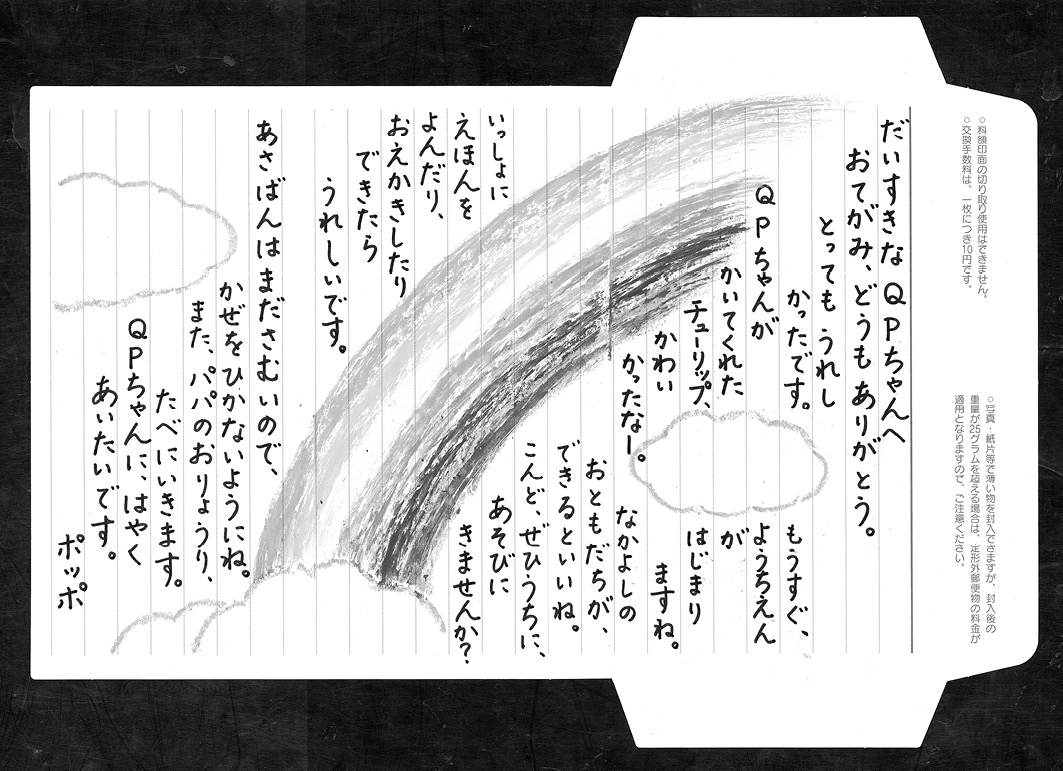 ○料額印面の切り取り使用はできません。
○交換手数料は、一枚につき10円です。
○写真・紙片等で薄い物を封入できますが、封入後の
重量が25グラムを超える場合は、定形外郵便物の料金が
適用となりますので、ご注意ください。
だいすきなQPちゃんへ
おてがみ、どうもありがとう。
とってもうれし
かったです。
QPちゃんが
かいてくれた
チューリップ、
かわい
かったなー。
もうすぐ、
ようちえん
が
はじまり
ますね。
なかよしの
おともだちが、
できるといいね。
こんど、ぜひうちに、
あそびに
きませんか?
いっしょに
えほんを
よんだり、
おえかきしたり
できたら
うれしいです。
あさばんはまださむいので、
かぜをひかないようにね。
また、パパのおりょうり、
たべにいきます。
QPちゃんに、はやく
あいたいです。
ポッポ